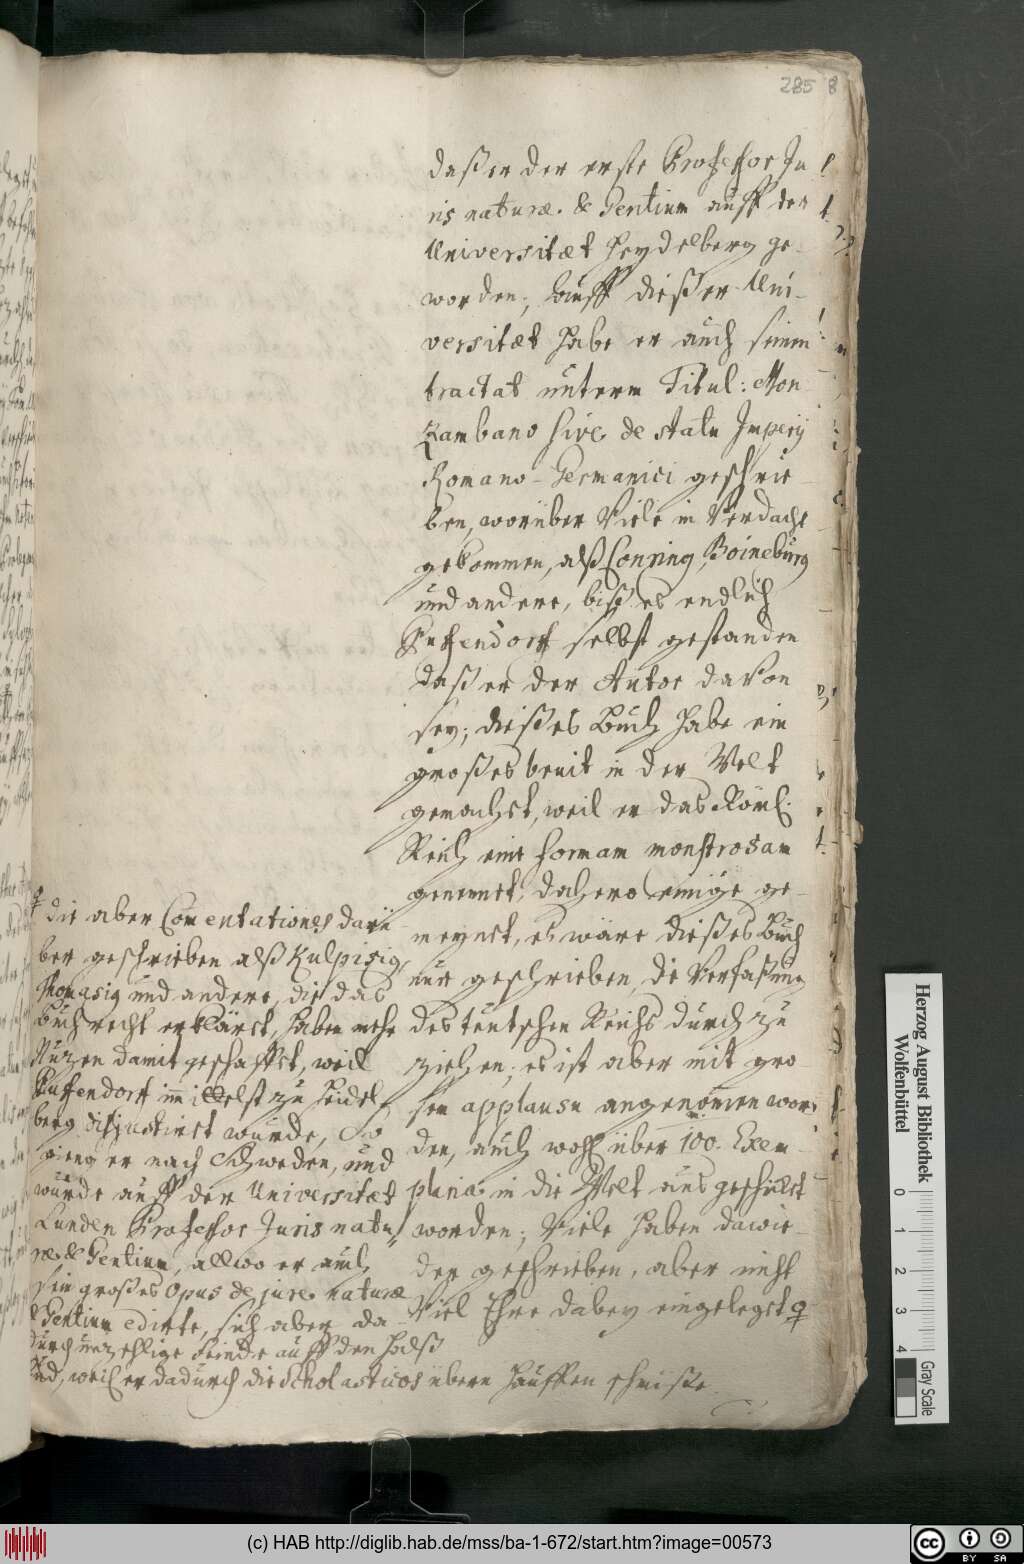 285 8
daß er der erste Professor Ju
ris naturæ & Gentium auff der
Universitæt Heydelberg ge-
worden; Auff dießer Uni-
versitæt habe er auch seinen
tractat unterm Titul: Mon
zambano sive de statu Imperij
Romano-Germanici geschrie
ben, worüber Viele in Verdacht
gekommen, alß Conring, Boineburg
und andere, biß es endlich
Pufendorff selbst gestanden
daß er der Autor davon
sey; dießes Buch habe ein
großes bruit in der Welt
gemachet, weil er das Röml.
Reich eine formam monstrosam
genennet; dahero einige ge-
meynet, es wäre dießes Buch
nur geschrieben, die Verfaßung
des teutschen Reichs durch zu
ziehen; es ist aber mit gro
sen applausu angenom̅en wor
den, auch wohl über 100. Exem
plaria in die Welt ausgeschickt
worden; Viele haben dawie-
der geschrieben, aber nicht
Viel Ehre dabey eingeleget
die aber Com̅entationes darü
ber geschrieben alß Kulpisig,
Thomasig und andere, die das
Buch recht erklärt, haben mehr
Nuzen damit geschafft, weil
Pufendorff im̅ittelst zu Heidel
berg disgustiret wurde, So
gieng er nach Schweden, und
wurde auff der Universitæt
Lunden Professor Juris natu
ræ & Gentium, allwo er auch
sein großes Opus de jure naturæ
& Gentium edirte, sich aber da
durch unzehlige Feinde auff den Halß
lud, weil er dadurch die Scholasticos übern Hauffen schmiße.
Herzog August Bibliothek
Wolfenbüttel
0 1 2 3 4
Gray Scale
(c) HAB http://diglib.hab.de/mss/ba-1-672/start.htm?image=00573
cc BY SA